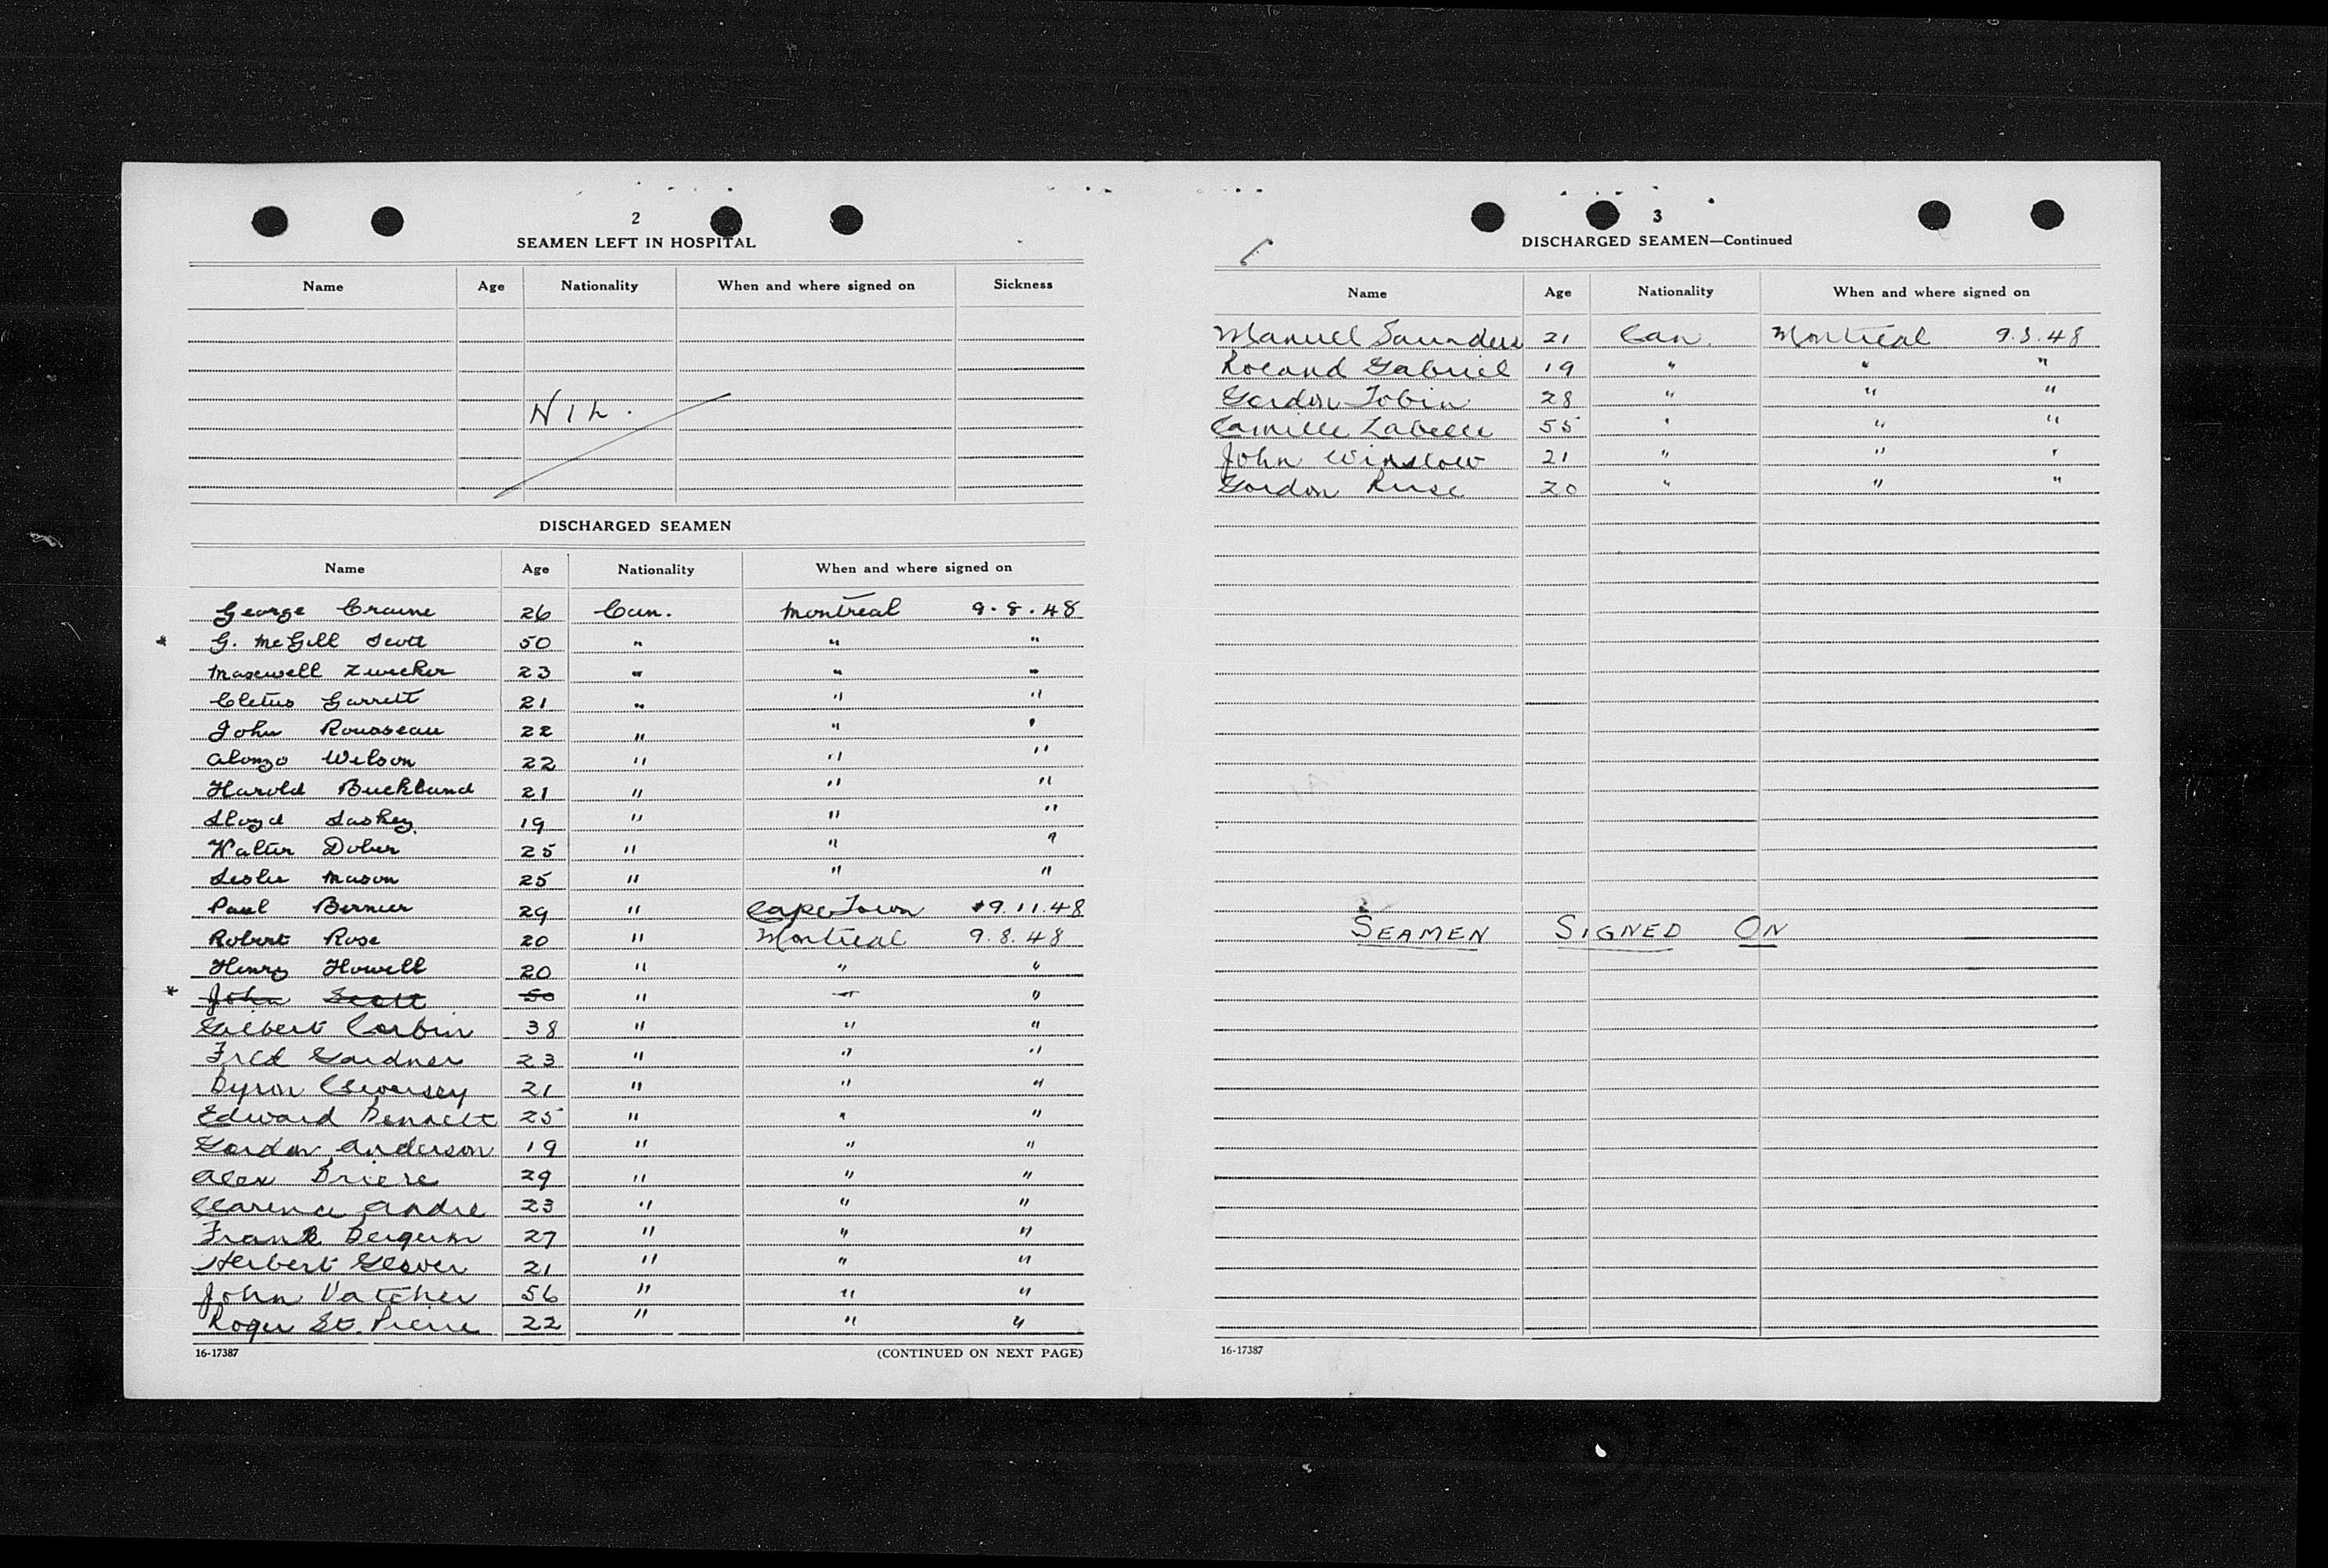 2
SEAMEN LEFT IN HOSPITAL
Name Age Nationality When and where signed on Sickness
NIL.
DISCHARGED SEAMEN
Name Age Nationality When and where signed on
George Craine 26 Can. Montreal 9.8.48
* G. McGill Scott 50 " " "
Maxwell Zwicker 23 " " "
Cletus Garrett 21 " " "
John Rousseau 22 " " "
Alonzo Wilson 22 " " "
Harold Buckland 21 " " "
Lloyd Laskey 19 " " "
Walter Dober 25 " " "
Leslie Mason 25 " " "
Paul Bernier 29 " Cape Town 19.11.48
Robert Rose 20 " Montreal 9.8.48
Henry Howell 20 " " "
* John Scott 50 " " "
Gilbert Corbin 38 " " "
Fred Gardner 23 " " "
Byron 21 " " "
Edward Bennett 25 " " "
Gordon Anderson 19 " " "
Alex Briere 29 " " "
Clarence Andre 23 " " "
Frank 27 " " "
Herbert Glover 21 " " "
John Vatcher 56 " " "
Roger St. Pierre 22 " " "
16-17387 (CONTINUED ON NEXT PAGE)
3
DISCHARGED SEAMEN—Continued
Name Age Nationality When and where signed on
Manuel Saunders 21 Can. Montreal 9.8.48
Roland Gabriel 19 " " "
Gordon Tobin 28 " " "
Camille Labelle 55 " " "
John Winslow 21 " " "
Gordon 20 " " "
SEAMEN SIGNED ON
16-17387